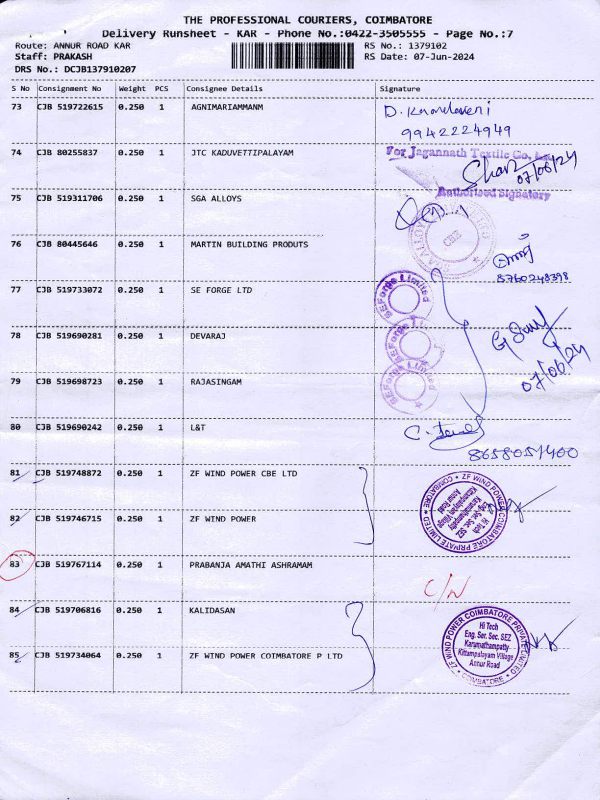 THE PROFESSIONAL COURIERS, COIMBATORE
Delivery Runsheet - KAR - Phone No.:0422-3505555 - Page No.:7
Route: ANNUR ROAD KAR
RS No.: 1379102
Staff: PRAKASH
RS Date: 07-Jun-2024
DRS No.: DCJB137910207
S No Consignment No Weight PCS Consignee Details Signature
73 CJB 519722615 0.250 1 AGNIMARIAMMANM
9942224949
74 CJB 80255837 0.250 1 JTC KADUVETTIPALAYAM
For Jagannath Textile Co.,
07/06/24
Authorised Signatory
75 CJB 519311706 0.250 1 SGA ALLOYS
76 CJB 80445646 0.250 1 MARTIN BUILDING PRODUTS
8760248398
77 CJB 519733072 0.250 1 SE FORGE LTD
SEForge Limited
78 CJB 519690281 0.250 1 DEVARAJ
SEForge Limited
79 CJB 519698723 0.250 1 RAJASINGAM
SEForge Limited
07/06/24
80 CJB 519690242 0.250 1 L&T
8658051400
81 CJB 519748872 0.250 1 ZF WIND POWER CBE LTD
82 CJB 519746715 0.250 1 ZF WIND POWER
ZF WIND POWER COIMBATORE PRIVATE LIMITED
COIMBATORE
Hi Tech
Eng. Ser. Sec. SEZ
Karamathampatty
Kittampalayam Village
Annur Road
83 CJB 519767114 0.250 1 PRABANJA AMATHI ASHRAMAM
C/N
84 CJB 519706816 0.250 1 KALIDASAN
85 CJB 519734064 0.250 1 ZF WIND POWER COIMBATORE P LTD
ZF WIND POWER COIMBATORE PRIVATE LIMITED
COIMBATORE
Hi Tech
Eng. Ser. Sec. SEZ
Karamathampatty
Kittampalayam Village
Annur Road